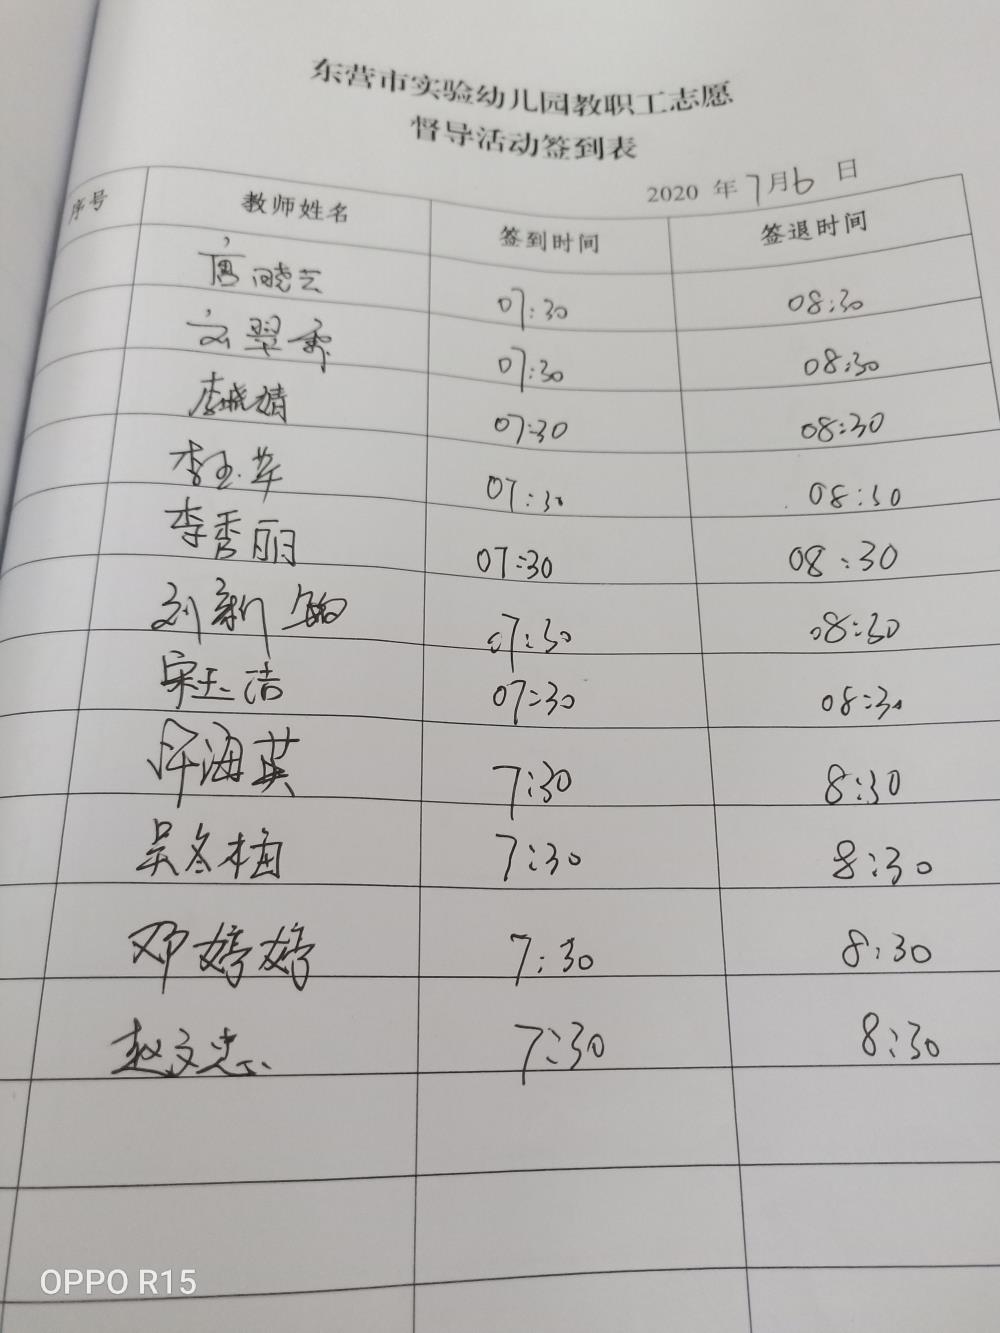 东营市实验幼儿园教职工志愿
督导活动签到表
2020 年 7月6 日
序号 教师姓名 签到时间 签退时间
晓艺 07:30 08:30
翠秀 07:30 08:30
李晓婧 07:30 08:30
李玉苹 07:30 08:30
李秀丽 07:30 08:30
刘新 07:30 08:30
宋玉洁 07:30 08:30
海英 7:30 8:30
吴冬梅 7:30 8:30
邓婷婷 7:30 8:30
赵文忠 7:30 8:30
OPPO R15